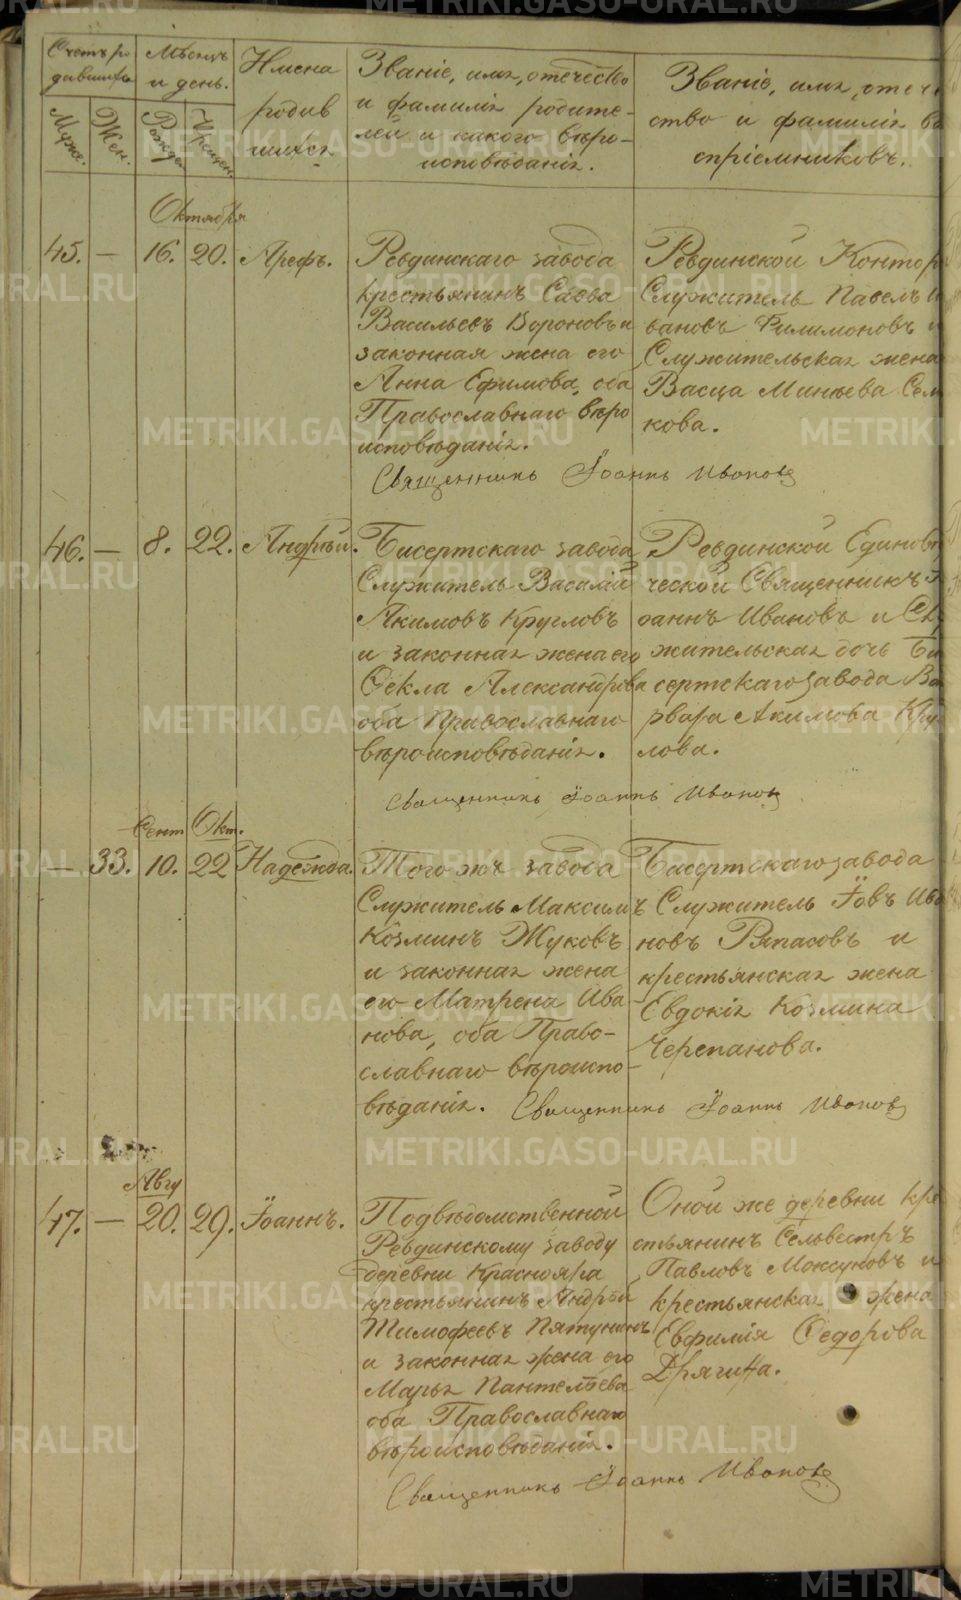 Счетъ ро
дившихъ
Мѣсяцъ
и день.
Муж.
Жен.
Рожден
Крещен.
Имена
родив
шихся
Званіе, имя, отечество
и фамилія родите-
лей и какого вѣро-
исповѣданія.
Званіе, имя, отече
ство и фамилія во
спріемниковъ.
Октября
45. — 16. 20. Арефъ.
Ревдинскаго завода
крестьянинъ Савва
Васильевъ Вороновъ и
законная жена его
Анна Ефимова, оба
Православнаго вѣро
исповѣданія.
Ревдинской Контор
Служитель Павелъ И
вановъ Филимоновъ и
Служительская жена
Васса Минѣева
кова.
Священникъ Іоаннъ Ивановъ
46. — 8. 22. Андрѣй.
Бисертскаго завода
Служитель Василій
Акимовъ Кругловъ
и законная жена его
Ѳекла Александрова
оба Православнаго
вѣроисповѣданія.
Ревдинской Единовѣ
ческой Священникъ І
оаннъ Ивановъ и Слу
жительская дочь Би
сертскаго завода Ва
рвара Акимова Круг
лова.
Священникъ Іоаннъ Ивановъ
Сент Окт.
— 33. 10. 22 Надежда.
Того жъ завода
Служитель Максимъ
Козминъ Жуковъ
и законная жена
его Матрена Ива
нова, оба Право-
славнаго вѣроиспо-
вѣданія.
Бисертскаго завода
Служитель Іовъ Ива
новъ Ряпасовъ и
крестьянская жена
Евдокія Козмина
Черепанова.
Священникъ Іоаннъ Ивановъ
Авгу
47. — 20. 29. Іоаннъ.
Подвѣдомственной
Ревдинскому заводу
деревни Краснояра
крестьянинъ Андрѣй
Тимофеевъ Пятунинъ
и законная жена его
Марья Пантелѣева
оба Православнаго
вѣроисповѣданія.
Оной же деревни кре
стьянинъ Сельвестръ
Павловъ Моксуновъ и
крестьянская жена
Евфимія Ѳедорова
Дрягина.
Священникъ Іоаннъ Ивановъ
METRIKI.GASO-URAL.RU